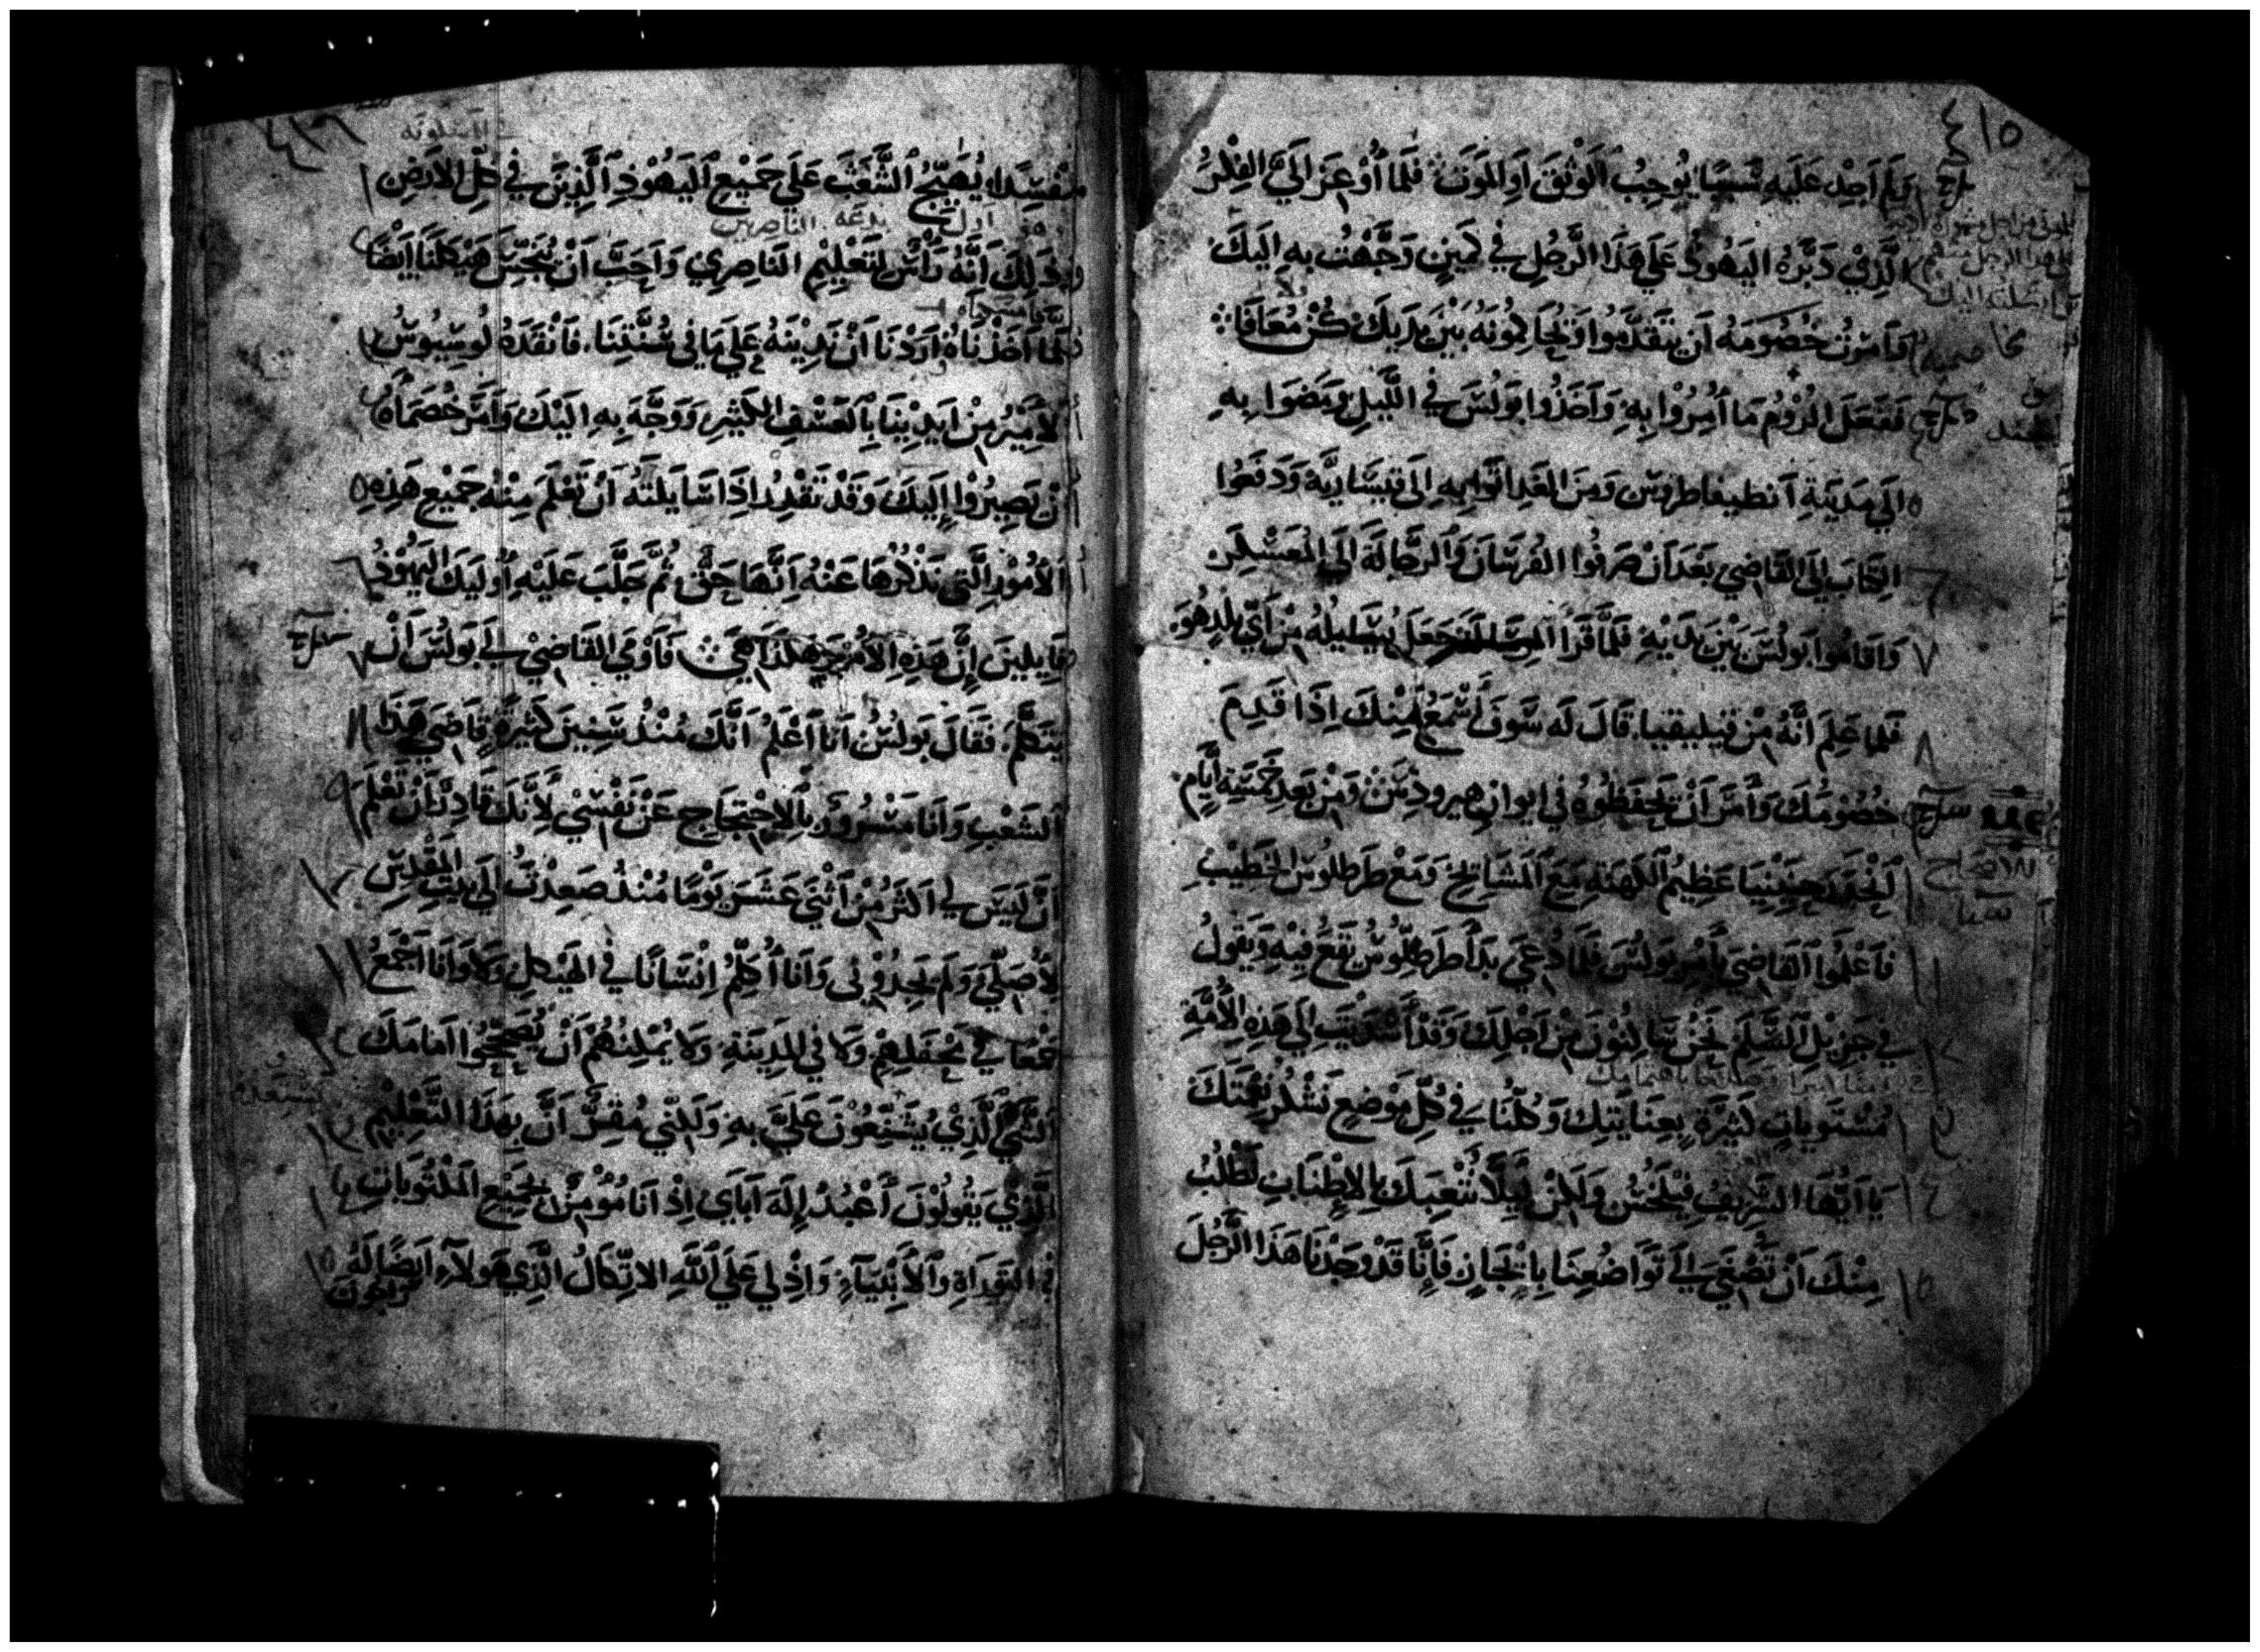 ٤١٥
وَلَم اَجِد عَلَيهِ شَيئًا يُوجِبُ الوَثَقَ اَوِ المَوتَ فَلَمَّا أُوْعِزَ اِلَيَّ الفِكْرُ
الَّذِيْ دَبَّرَهُ اليَهُودُ عَلَي هَذَا الرَّجُلِ في كَمِينٍ وَجَّهْتُ بِهِ اِلَيكَ
وَاَمَرْتُ خُصُومَهُ اَن يَتَقَدَّمُوا وَيُحَاكِمُونَهُ بَيْنَ يَدَيكَ كُنْ مُعَافَا
فَفَعَلَ الرُّوْمُ مَا اُمِرُوا بِهِ وَاَخَذُوا بَولُسَ في اللَّيلِ وَمَضَوا بِهِ
اِلَي مَدِينَةِ انطيفاطروس وَمِنَ الغَدِ اَتَوا بِهِ اِلَي قَيسَارِيَّة وَدَفَعُوا
الكِتَابَ اِلَى القَاضِي بَعْدَ اَنْ صَرَفُوا الفُرسَانَ وَالرَّجَالَةَ اِلَي المُعَسْكَرِ
وَاَقَامُوا بَولُسَ بَيْنَ يَدَيْهِ فَلَمَّا قَرَأَ جَعَلَ يُسَايِلُهُ مِن اَيِّ بَلَدٍ هُوَ
فَلَمَّا عَلِمَ اَنَّهُ مِن قيليقيا قَالَ لَه سَوفَ أَسْمَعُ مِنكَ اِذَا قَدِمَ
خُصُومُكَ وَأَمَرَ اَنْ يَحفَظُوهُ في ايوانِ هيرودس وَمِنْ بَعدِ خَمسَةِ اَيَّامٍ
اَنْحَدَرَ حَنَنِيَا عَظِيمُ الكَهَنَةِ مَعَ المَشَايِخِ وَمَعْ طَرطلوس الخَطِيبِ
فَاَعْلَمُوا القَاضِيَ بِأَمْرِ بَولُسَ فَلَمَّا دُعِيَ بَدَأَ طَرطلُّوسُ يَقَعُ فِيْهِ وَيَقُولُ
في جَزِيْلِ السَّلَمِ نَحْنُ سَاكِنُوْنَ مِنْ اَجْلِكَ وَقَدْ أُسْدِيَت اِلَي هَذِهِ الأُمَّةِ
مُسْتَوِيَاتٍ كَثِيْرَةٍ بِعِنَايَتِكَ وَكُلُّنَا في كُلِّ مَوْضِعٍ نَشْكُرُ نِعْمَتَكَ
يَا اَيُّهَا الشَّرِيْفُ فِيْلَخسُ وَلَكِنْ لِيَلَّا نُتْعِبَكَ بِالاِطْنَابِ نَطْلُبُ
مِنْكَ اَنْ تُصْغِيَ اِلَى تَوَاضُعِنَا بِاِيْجَازٍ فَاِنَّا قَدْ وَجَدْنَا هَذَا الرَّجُلَ
٤١٦
مُفْسِدًا يُهَيِّجُ الشَّغْبَ عَلَي جَمِيْعِ اليَهُوْدِ الَّذِيْنَ في كُلِّ الاَرْضِ
وَذَلِكَ اَنَّهُ رَأْسٌ لِتَعْلِيْمِ النَاصِرِي وَاَحَبَّ اَنْ يُنَجِّسَ هَيْكَلَنَا اَيْضًا
فَلَمَّا اَخَذْنَاهُ اَرَدْنَا اَنْ نَدِيْنَهُ عَلَي مَا في سُنَّتِنَا فَاَنْقَذَهُ لُوسِيُوسُ
الاَمِيْرُ مِنْ اَيدِيْنَا بِالعَسْفِ الكَثِيْرِ وَوَجَّهَ بِهِ اِلَيْكَ وَاَمَرَ خُصَمَاهُ
اَنْ يَصِيْرُوْا اِلَيكَ وَقَدْ تَقْدِرُ اِذَا سَايَلْتَهُ اَنْ تَعْلَمَ مِنْهُ جَمِيْعَ هَذِهِ
الاُمُوْرِ الَّتِي نَذْكُرُهَا عَنْهُ اَنَّهَا حَقٌّ ثُمَّ جَلَّبَ عَلَيْهِ اُوْلَيِكَ اليَهُوْدُ
قَايِلِينَ اِنَّ هَذِهِ الاُمُوْرَ هَكَذَا هِيَ فَاَوْمَي القَاضِيْ اِلَي بَولُسَ اَنْ
يَتَكَلَّمَ فَقَالَ بَولُسُ اَنَا اَعْلَمُ اَنَّكَ مُنْذُ سِنِيْنَ كَثِيْرَةٍ قَاضِي هَذَا
الشَعْبِ وَاَنَا مَسْرُورٌ بِالاِحْتِجَاجِ عَنْ نَفْسِيْ لِاَنَّكَ قَادِرٌ اَنْ تَعْلَمَ
اَنَّ لَيسَ لِي اَكثَرُ مِنْ اَثْنَي عَشَرَ يَوْمًا مُنْذُ صَعِدْتُ اِلَي بَيْتِ المَقْدِسِ
لِاُصَلِّيَ وَلَم يَجِدُوْنِي وَاَنَا اُكَلِّمُ اِنْسَانًا في الهَيْكَلِ وَلَا وَاَنَا اَجْمَعُ
جَمْعًا في مَحْفَلِهِمْ وَلَا في المَدِيْنَةِ وَلَا يُمْكِنُهُمْ اَنْ يُصَحِّحُوا اَمَامَكَ
الشَّيَّ الَّذِيْ يُشَنِّعُوْنَ عَلَيَّ بِهِ وَلَكِنِّي مُقِرٌّ اَنَّ بِهَذَا التَّعْلِيْمِ
الَّذِيْ يَقُوْلُوْنَ أَعْبُدُ اِلَهَ اَبَاَي اِذْ اَنَا مُؤْمِنٌ بِجَمِيْعِ المَكْتُوبَاتِ
في التَورَاةِ وَالاَنْبِيَآءِ وَاِذْ لِي عَلَي اللَّهِ الاتِّكَالُ الَّذِي هَولَاءِ اَيضًا لَهُ
رَاجُونَ